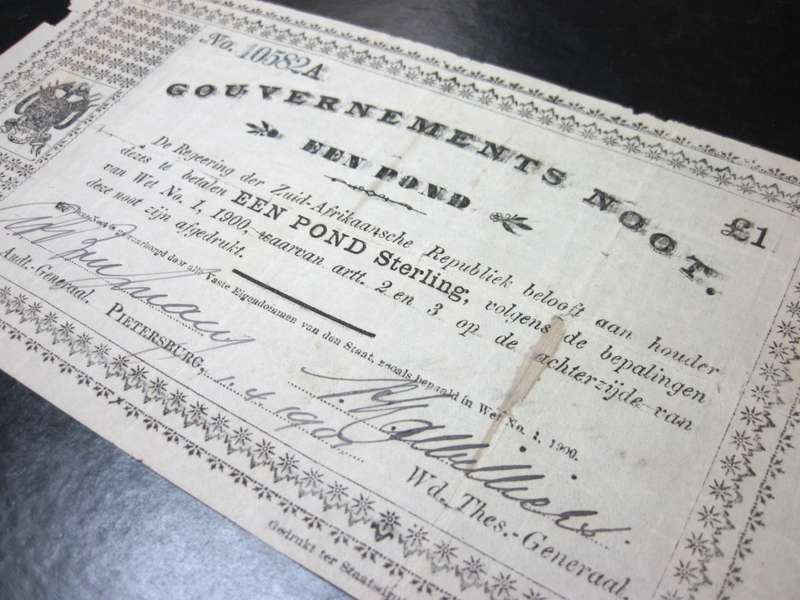 No. 10582A
GOUVERNEMENTS NOOT.
EEN POND
£1
De Regeering der Zuid-Afrikaansche Republiek belooft aan houder
dezes te betalen EEN POND Sterling, volgens de bepalingen
van Wet No. 1, 1900, waarvan artt. 2 en 3 op de achterzijde van
deze noot zijn afgedrukt.
door alle Vaste Eigendommen van den Staat, zooals bepaald in Wet No. 1, 1900.
Aud.-Generaal.
PIETERSBURG,
1.4.1901
Wd. Thes.-Generaal.
Gedrukt ter